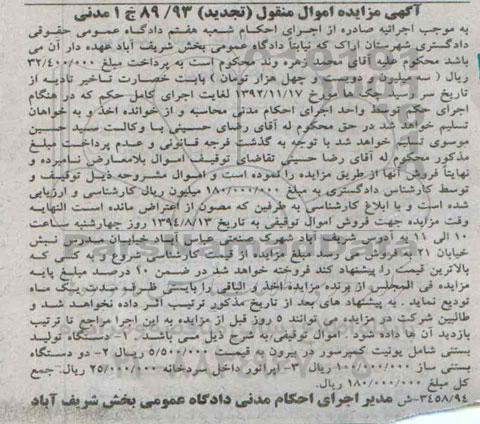 آگهی مزایده اموال منقول (تجدید) ۸۹/۹۳ ج ۱ مدنی
به موجب اجرائیه صادره از اجرای احکام شعبه هفتم دادگاه عمومی حقوقی
دادگستری شهرستان اراک که نیابتاً دادگاه عمومی بخش شریف آباد عهده دار آن می
باشد محکوم علیه آقای محمد زهره وند محکوم است به پرداخت مبلغ ۳۲/۴۰۰/۰۰۰
ریال ( سه میلیون و دویست و چهل هزار تومان ) بابت خسارت تاخیر تادیه از
تاریخ سر رسید چک ها مورخ ۱۳۹۲/۱۱/۱۷ لغایت اجرای کامل حکم که در هنگام
اجرای حکم توسط واحد اجرای احکام مدنی محاسبه و از خوانده اخذ و به خواهان
تسلیم خواهد شد در حق محکوم له آقای رضای حسینی با وکالت سید حسین
موسوی تسلیم خواهد شد با توجه به گذشت فرجه قانونی و عدم پرداخت مبلغ
مذکور محکوم له آقای رضا حسینی تقاضای توقیف اموال بلامعارض نامبرده و
نهایتاً فروش آنها از طریق مزایده را نموده است و اموال مشروحه ذیل توقیف و
توسط کارشناس دادگستری به مبلغ ۱۸۰/۰۰۰/۰۰۰ میلیون ریال کارشناسی و ارزیابی
شده است و با ابلاغ کارشناسی به طرفین که مصون از اعتراض مانده است النهایه
وقت مزایده جهت فروش اموال توقیفی به تاریخ ۱۳۹۴/۸/۱۳ روز چهارشنبه ساعت
۱۰ الی ۱۱ به آدرس شریف آباد شهرک صنعتی عباس آباد خیابان مدرس نبش
خیابان ۲۱ به فروش می رسد مبلغ مزایده از قیمت کارشناسی شروع و به کسی که
بالاترین قیمت را پیشنهاد کند فروخته خواهد شد در ضمن ۱۰ درصد مبلغ پایه
مزایده فی المجلس از برنده مزایده اخذ و الباقی را بایستی ظرف مدت یک ماه
تودیع نماید . به پیشنهاد های بعد از تاریخ مذکور ترتیب اثر داده نخواهد شد و
طالبین شرکت در مزایده می توانند ۵ روز قبل از مزایده به این اجرا مراجعه تا ترتیب
بازدید آن ها داده شود . اموال توقیفی به شرح ذیل می باشد ۱- دستگاه تولید
بستنی شامل یونیت کمپرسور در بیرون به قیمت ۵/۵۰۰/۰۰۰ ریال ۲- دو دستگاه
بستنی ساز ۱۰۰/۰۰۰/۰۰۰ ریال ۳- اپراتور داخل سردخانه ۲۵/۰۰۰/۰۰۰ ریال- جمع
کل مبلغ ۱۸۰/۰۰۰/۰۰۰ ریال.
۳۴۵۸/۹۴-ش مدیر اجرای احکام مدنی دادگاه عمومی بخش شریف آباد